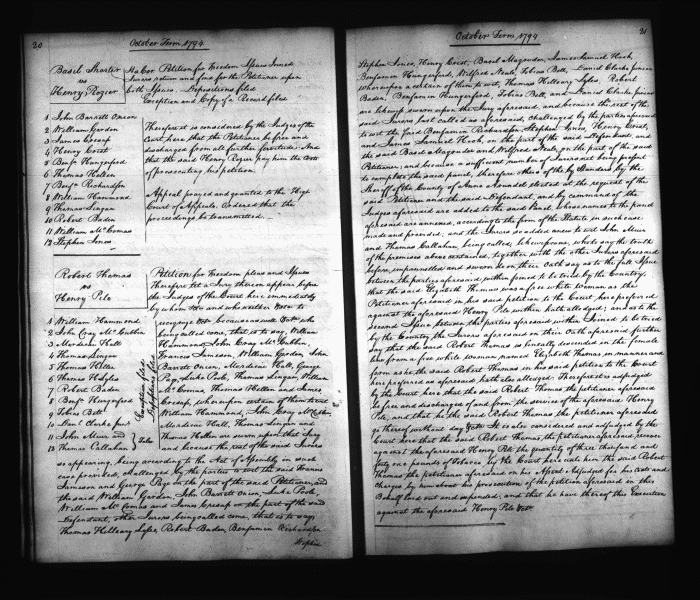 20
October Term 1794
Basil Shorter
vs
Henry Rozier
Ha Cor Petition for Freedom Issues Joined
Jurors return and find for the Petitioner upon
both Issues. Depositions filed
Exception and Copy of a Record filed
1 John Barrett Onion
2 William Gordon
3 James Cresap
4 Henry Coest
5 Benja Hungerford
6 Thomas Hellen
7 Benja Richardson
8 William Hammond
9 Thomas Lingan
10 Robert Baden
11 William McComas
12 Stephen Jones
Therefore it is considered by the Judges of the
Court here that the Petitioner be free and
discharged from all further servitude. And
that the said Henry Rozier pay him the Costs
of prosecuting his petition.
Appeal prayed and granted to the High
Court of Appeals. Ordered that the
proceedings be transmitted.
Robert Thomas
vs
Henry Pile
Petition for Freedom pleas and Issues
Therefore let a Jury thereon appear before
the Judges of the Court here immediately
by whom &c and who neither &c to
recognize &c because as well &c who
being called come, that is to say, William
Hammond, John Cray McCubbin,
Francis Jameson, William Gordon, John
Barrett Onion, Mordecai Hall, George
Page, Luke Poole, Thomas Lingan, William
McComas, Thomas Hellen and James
Cresap, whereupon certain of them to wit
William Hammond, John Cray McCubbin
Mordecai Hall, Thomas Lingan and
Thomas Hellen are sworn upon that Jury
and because the rest of the said Jurors
1 William Hammond
2 John Cray McCubbin
3 Mordecai Hall
4 Thomas Lingan
5 Thomas Hellen
6 Thomas H Lyles
7 Robert Baden
8 Benja Hungerford
9 Tobias Belt
10 Danl Clarke Junr
11 John Muir and
12 Thomas Callahan
Tales
Depositions filed
so appearing, being according to the Act of Assembly in such
case provided, challenged by the parties to wit the said Francis
Jameson and George Page on the part of the said Petitioner, and
the said William Gordon, John Barrett Onion, Luke Poole,
William McComas and James Cresap on the part of the said
Defendant, other Jurors being called come, that is to say,
Thomas Hilleary Lyles, Robert Baden, Benjamin Richardson
Stephen
October Term 1794
21
Stephen Jones, Henry Coest, Basil Magruder, James Samuel Hook,
Benjamin Hungerford, Wilfred Neale, Tobias Belt, Daniel Clarke Junior
whereupon certain of them to wit, Thomas Hilleary Lyles, Robert
Baden, Benjamin Hungerford Tobias Belt, and Daniel Clarke Junior
are likewise sworn upon the Jury aforesaid, and because the rest of the
said Jurors last called as aforesaid, challenged by the parties aforesaid
to wit the said Benjamin Richardson, Stephen Jones, Henry Coest,
and James Samuel Hook, on the part of the said Defendant, and
the said Basil Magruder and Wilfred Neale, on the part of the said
Petitioner, and because a sufficient number of Jurors not being present
to complete the said panel, therefore others of the by Standers by the
Sheriff of the County of Anne Arundel elected at the request of the
said Petitioner and the said Defendant, and by command of the
Judges aforesaid are added to the said Panel, whose names to the panel
aforesaid are annexed, according to the form of the Statute in such case
made and provided, and the Jurors so added anew to wit John Muir
and Thomas Callahan, being called, likewise come, who to say the truth
of the premises above contained, together with the other Jurors aforesaid
before impannelled and sworn do on their Oath say as to the first Issue
between the parties aforesaid within joined to be tried by the Country,
that the said Elizabeth Thomas was a free white woman as the
Petitioner aforesaid in his said petition to the Court here preferred
against the aforesaid Henry Pile within hath alledged; and as to the
second Issue between the parties aforesaid within Joined to be tried
by the Country, the Jurors aforesaid on their Oath aforesaid further
say that the said Robert Thomas is lineally descended in the female
line from a free white woman named Elizabeth Thomas in manner and
form as he the said Robert Thomas in his said petition to the Court
here preferred as aforesaid hath also alledged. Therefore it is adjudged
by the Court here that the said Robert Thomas the petitioner aforesaid
be free and discharged of and from the service of the aforesaid Henry
Pile, and that he the said Robert Thomas the petitioner aforesaid
go thereof without day &c. It is also considered and adjudged by the
Court here that the said Robert Thomas, the petitioner aforesaid, recover
against the aforesaid Henry Pile the quantity of three thousand and
forty one pounds of Tobacco by the Court here unto him the said Robert
Thomas the petitioner aforesaid on his Assent Adjudged for his Costs and
Charges by him about his prosecution of the petition aforesaid in this
Behalf laid out and expended; and that he have thereof his Execution
against the aforesaid Henry Pile &c.